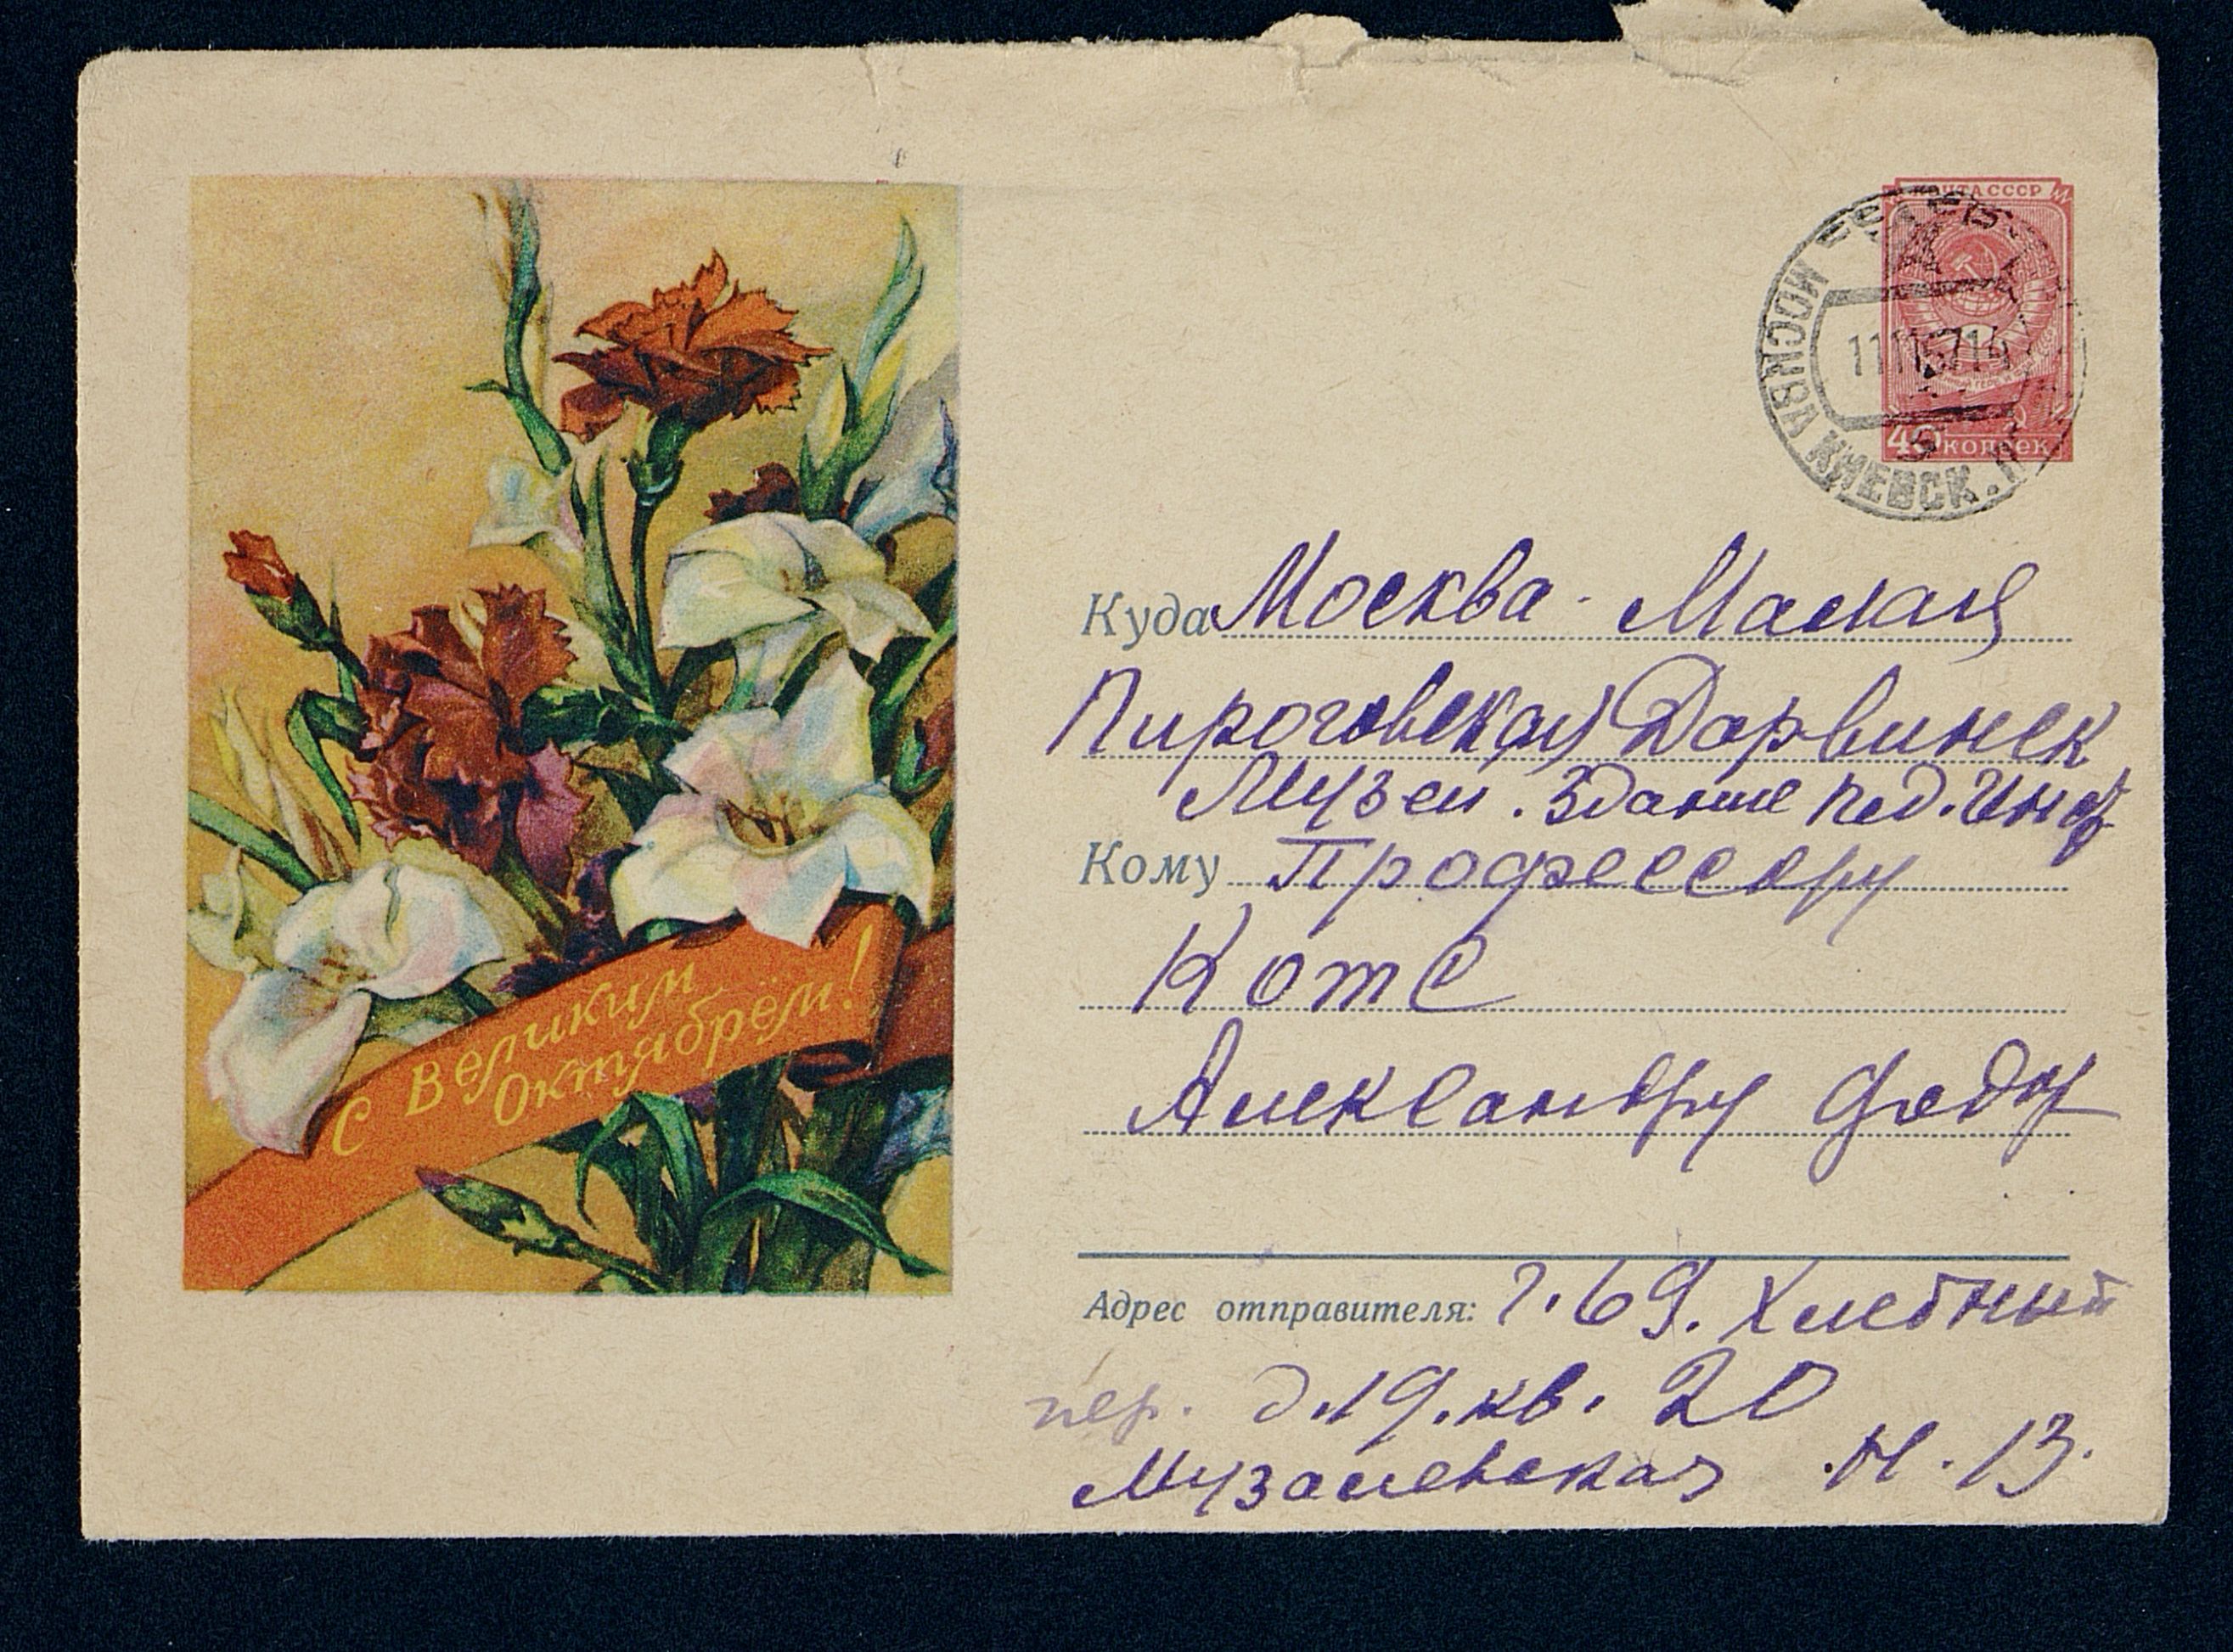 ПОЧТА СССР
МОСКВА КИЕВСК. П
11 11 57 14
40 копеек
С Великим
Октябрём!
Куда Москва - Малая
Пироговская Дарвинск
Музей. Здание пед. Инст
Кому Профессору
Котс
Александру Федор
Адрес отправителя: г. 69. Хлебный
пер. д. 19. кв. 20
Музалевская Н. В.